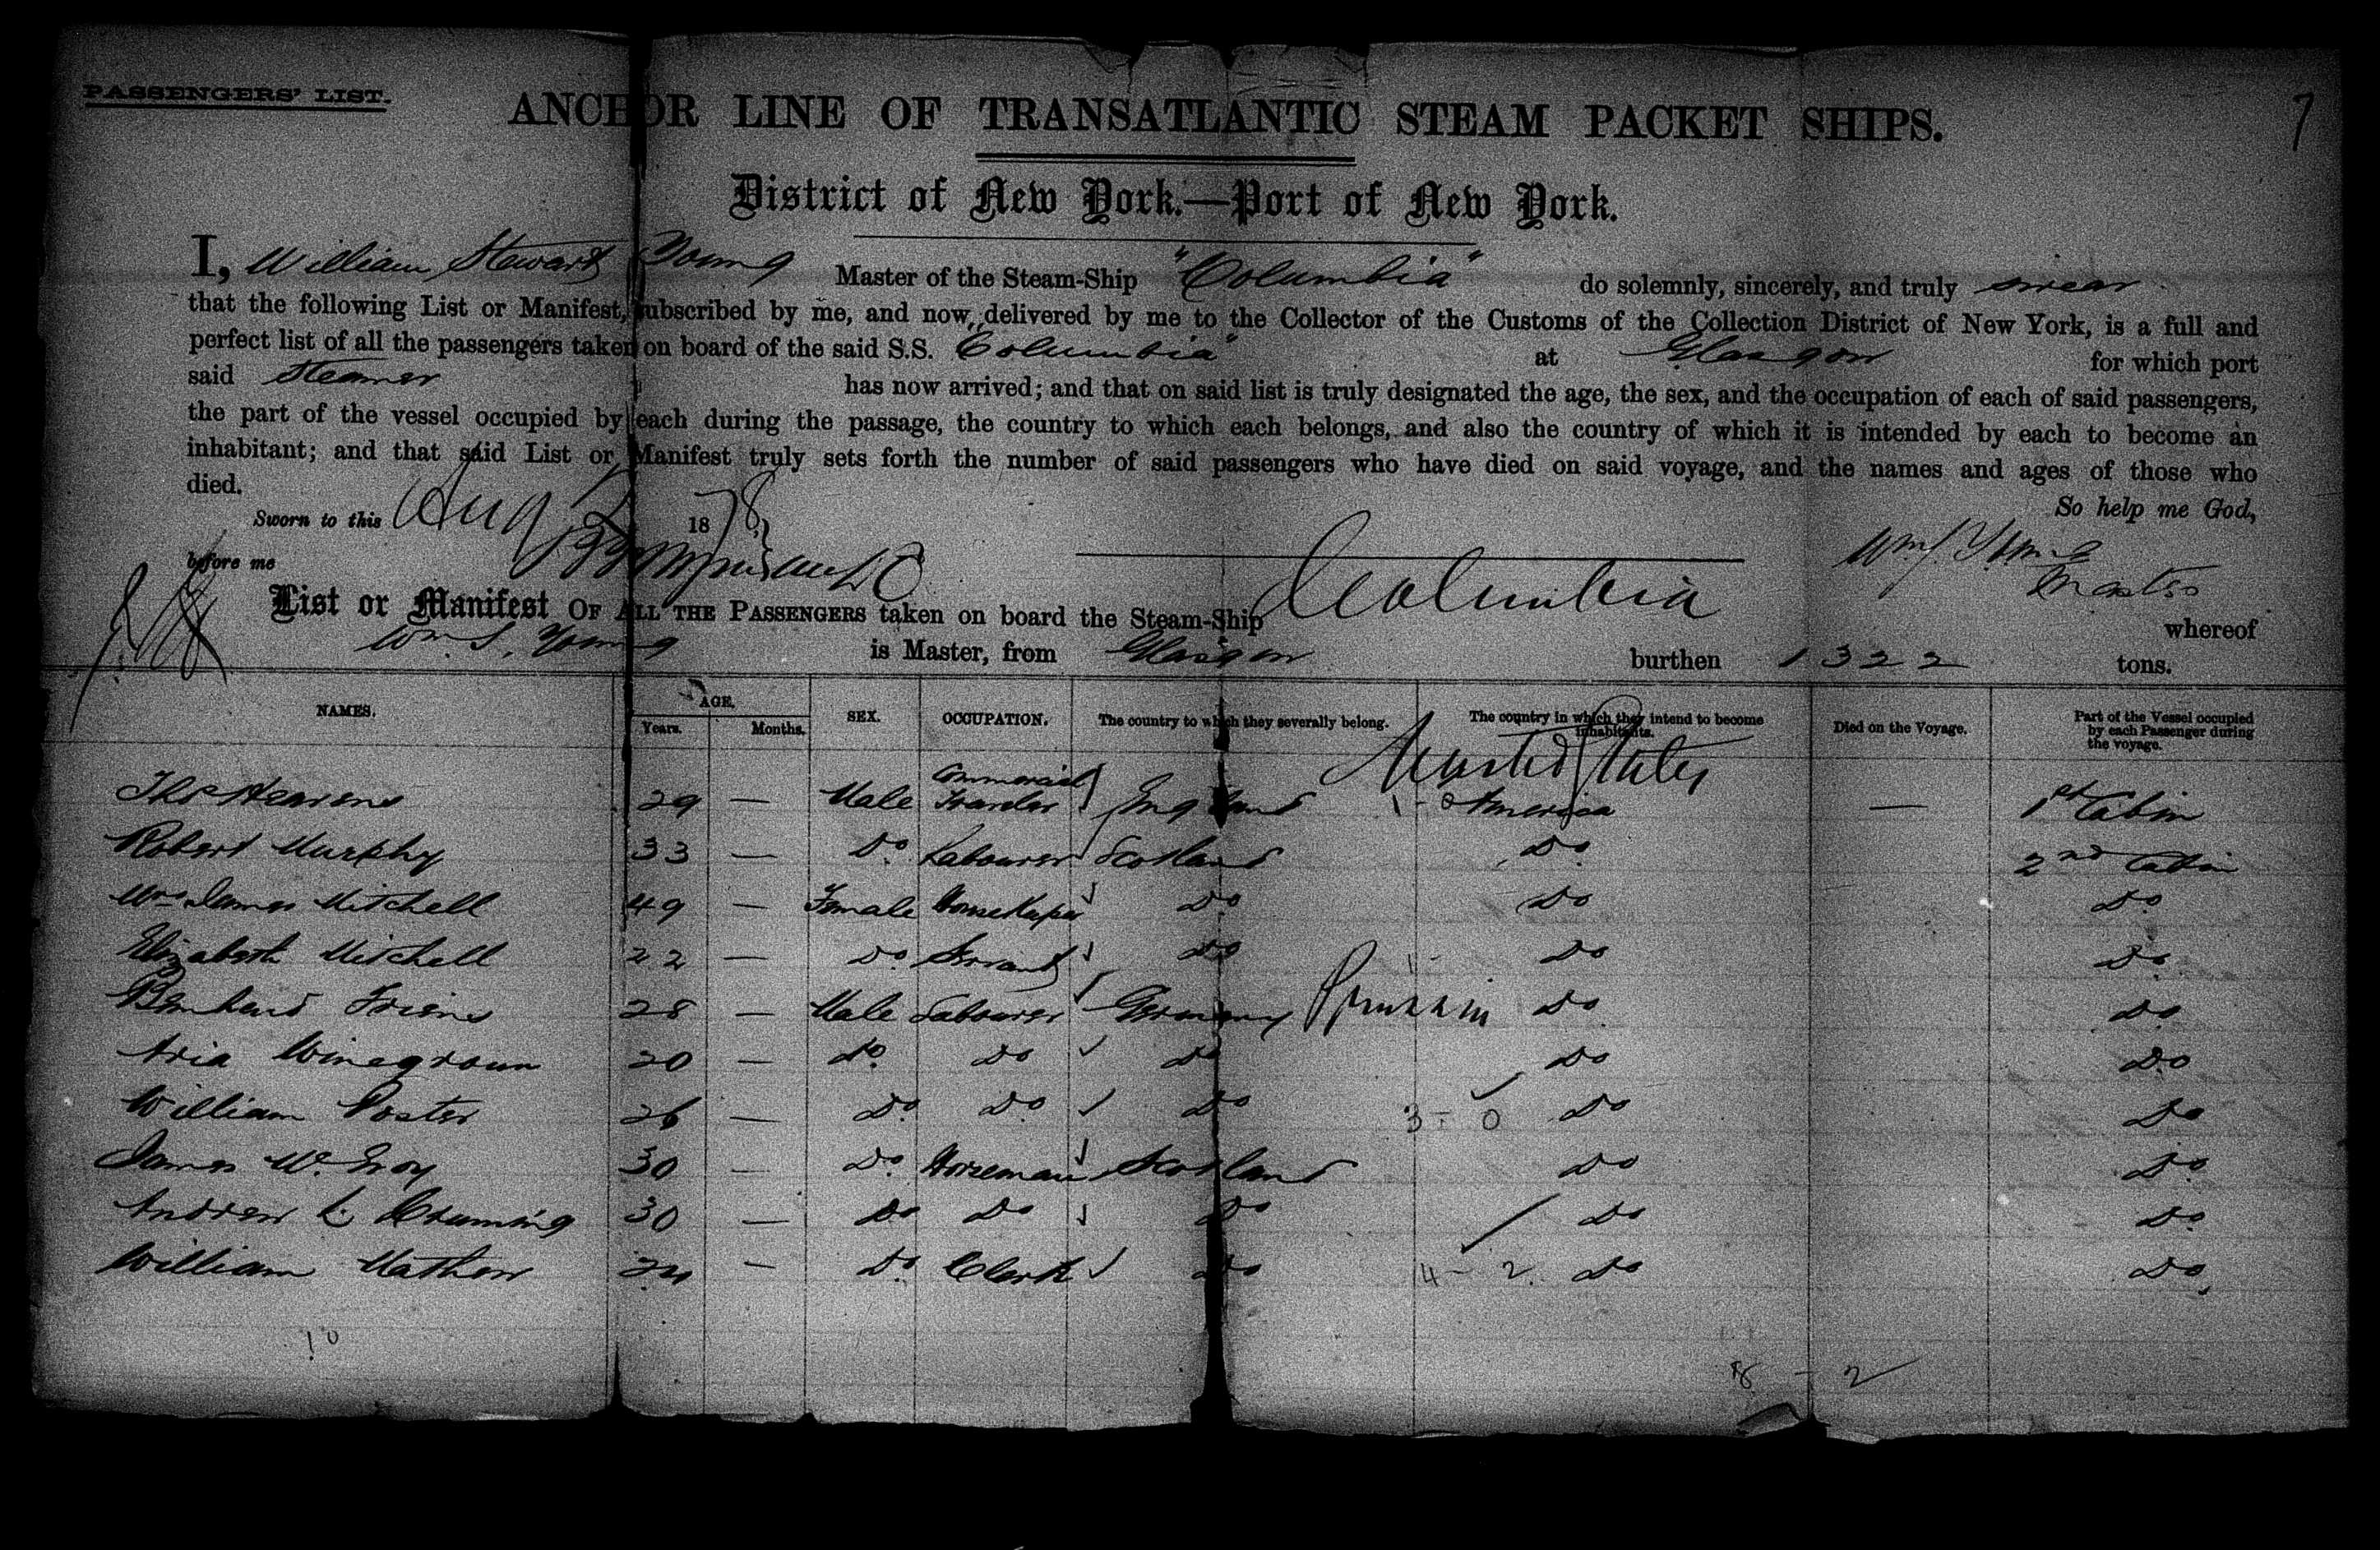 PASSENGERS' LIST.
7
ANCHOR LINE OF TRANSATLANTIC STEAM PACKET SHIPS.
District of New York.—Port of New York.
I, William Stewart Young Master of the Steam-Ship "Columbia" do solemnly, sincerely, and truly swear
that the following List or Manifest, subscribed by me, and now delivered by me to the Collector of the Customs of the Collection District of New York, is a full and
perfect list of all the passengers taken on board of the said S.S. "Columbia" at Glasgow for which port
said Steamer has now arrived; and that on said list is truly designated the age, the sex, and the occupation of each of said passengers,
the part of the vessel occupied by each during the passage, the country to which each belongs, and also the country of which it is intended by each to become an
inhabitant; and that said List or Manifest truly sets forth the number of said passengers who have died on said voyage, and the names and ages of those who
died.
So help me God,
Sworn to this Aug 1878
before me
Wm S. Young
Master
List or Manifest OF ALL THE PASSENGERS taken on board the Steam-Ship Columbia whereof
Wm. S. Young is Master, from Glasgow burthen 1322 tons.
NAMES. AGE. Years. Months. SEX. OCCUPATION. The country to which they severally belong. The country in which they intend to become inhabitants. Died on the Voyage. Part of the Vessel occupied by each Passenger during the voyage.
United States
Thos Hearens 29 — Male Commercial Traveler England 1 - 0 America — 1st Cabin
Robert Murphy 33 — Do Labourer Scotland Do 2nd Cabin
Mrs James Mitchell 49 — Female HouseKeeper Do Do Do
Elizabeth Mitchell 22 — Do Servant Do Do Do
Bernhard Friens 28 — Male Labourer Germany Prussia Do Do
Aria Winegroun 20 — do Do Do Do Do
William Poster 26 — Do Do Do 3 - 0 Do Do
James W. Gray 30 — Do Horseman Scotland Do Do
Andrew L. Cruming 30 — Do Do Do Do Do
William Mathew 24 — Do Clerk Do 4 - 2 Do Do
10
8 - 2